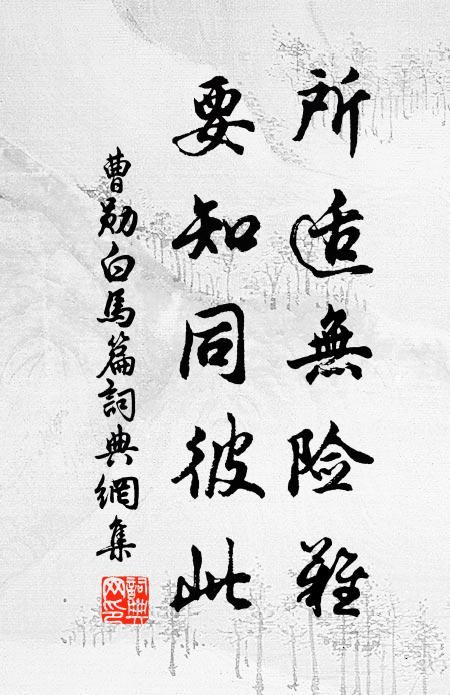 所适無险難
要知同彼此
曹勛白馬篇詞典網集
詞典網印